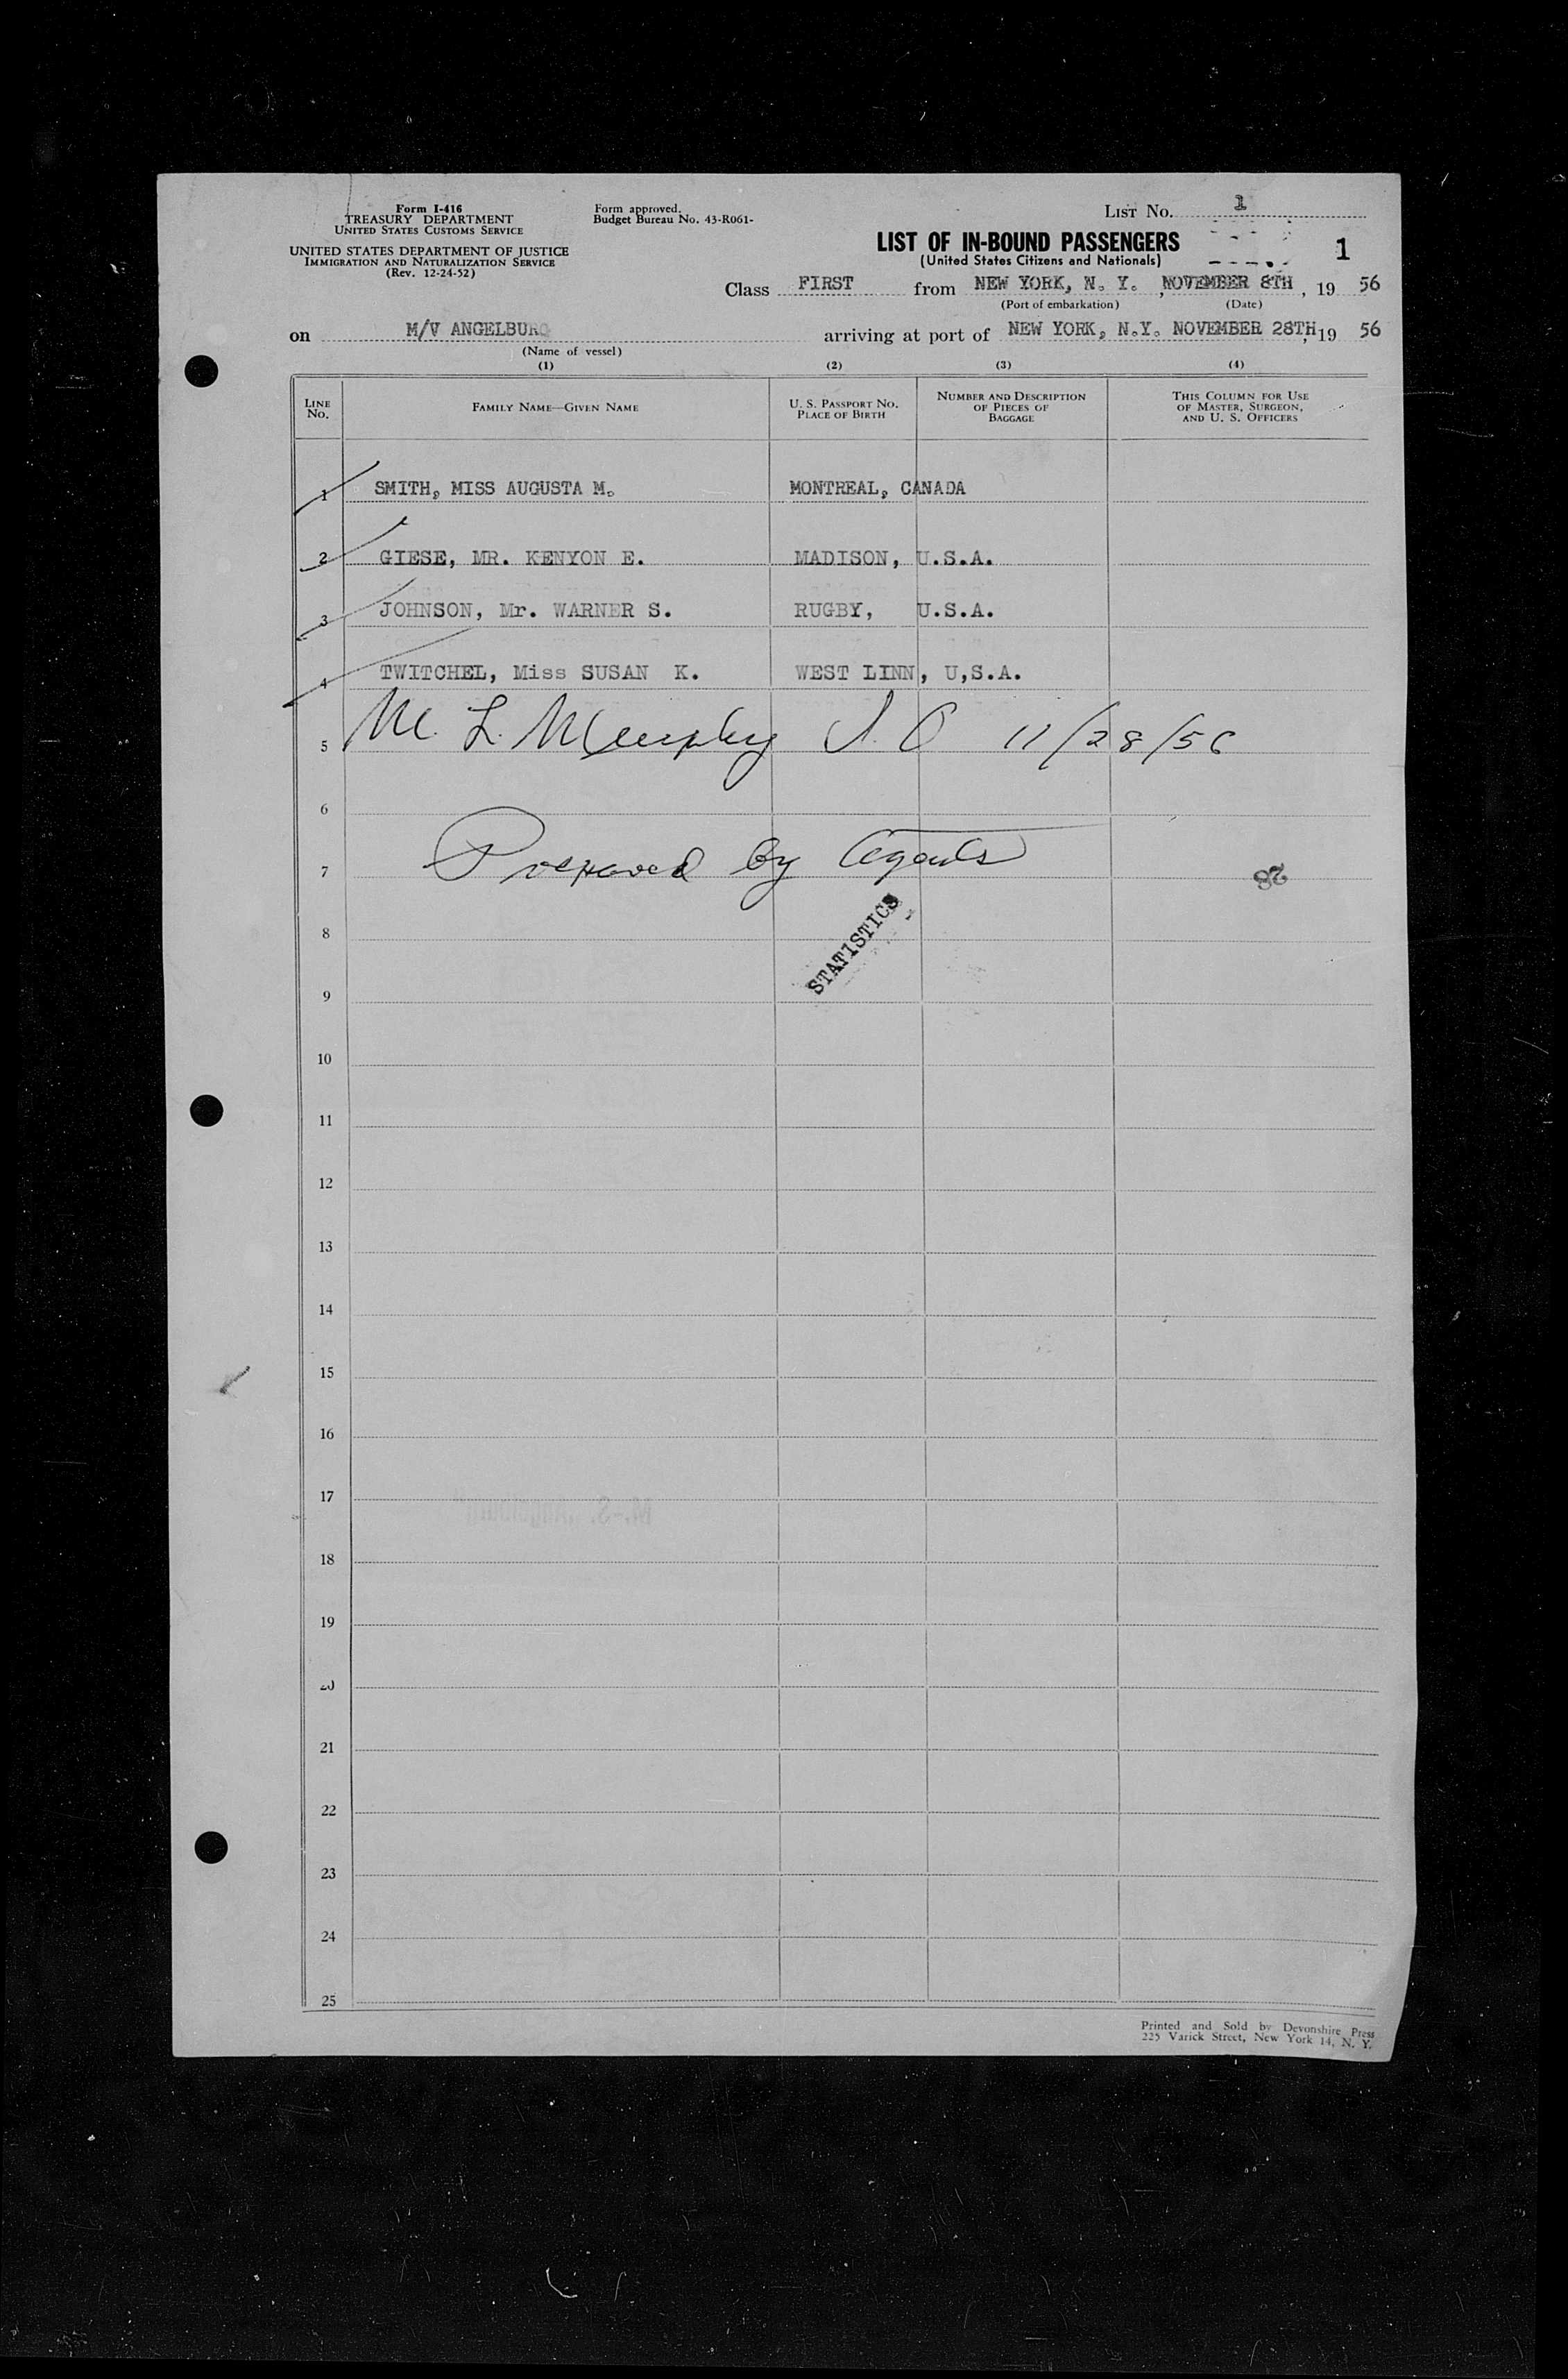 Form I-416
TREASURY DEPARTMENT
UNITED STATES CUSTOMS SERVICE
UNITED STATES DEPARTMENT OF JUSTICE
IMMIGRATION AND NATURALIZATION SERVICE
(Rev. 12-24-52)
Form approved.
Budget Bureau No. 43-R061-
LIST No. 1
LIST OF IN-BOUND PASSENGERS
(United States Citizens and Nationals)
1
Class FIRST from NEW YORK, N. Y. , NOVEMBER 8TH , 19 56
(Port of embarkation) (Date)
on M/V ANGELBURG arriving at port of NEW YORK, N.Y. NOVEMBER 28TH, 19 56
(Name of vessel)
(1) (2) (3) (4)
LINE No. FAMILY NAME—GIVEN NAME U. S. PASSPORT NO. PLACE OF BIRTH NUMBER AND DESCRIPTION OF PIECES OF BAGGAGE THIS COLUMN FOR USE OF MASTER, SURGEON, AND U. S. OFFICERS
1 SMITH, MISS AUGUSTA M. MONTREAL, CANADA
2 GIESE, MR. KENYON E. MADISON, U.S.A.
3 JOHNSON, Mr. WARNER S. RUGBY, U.S.A.
4 TWITCHEL, Miss SUSAN K. WEST LINN, U,S.A.
5 M. L. Murphy I. O 11/28/56
6
7 Prepared by Agents
28
STATISTICS
8
9
10
11
12
13
14
15
16
17
18
19
20
21
22
23
24
25
Printed and Sold by Devonshire Press
225 Varick Street, New York 14, N. Y.